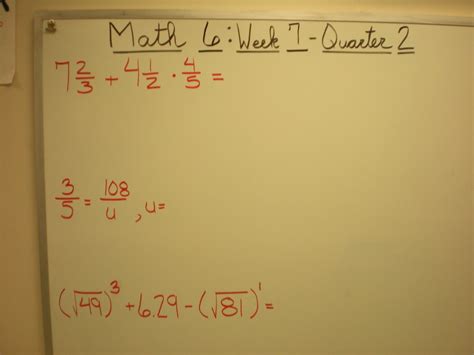 Math 6: Week 7 - Quarter 2
7 2/3 + 4 1/2 · 4/5 =
3/5 = 108/u , u=
(√49)³ + 6.29 - (√81)¹ =